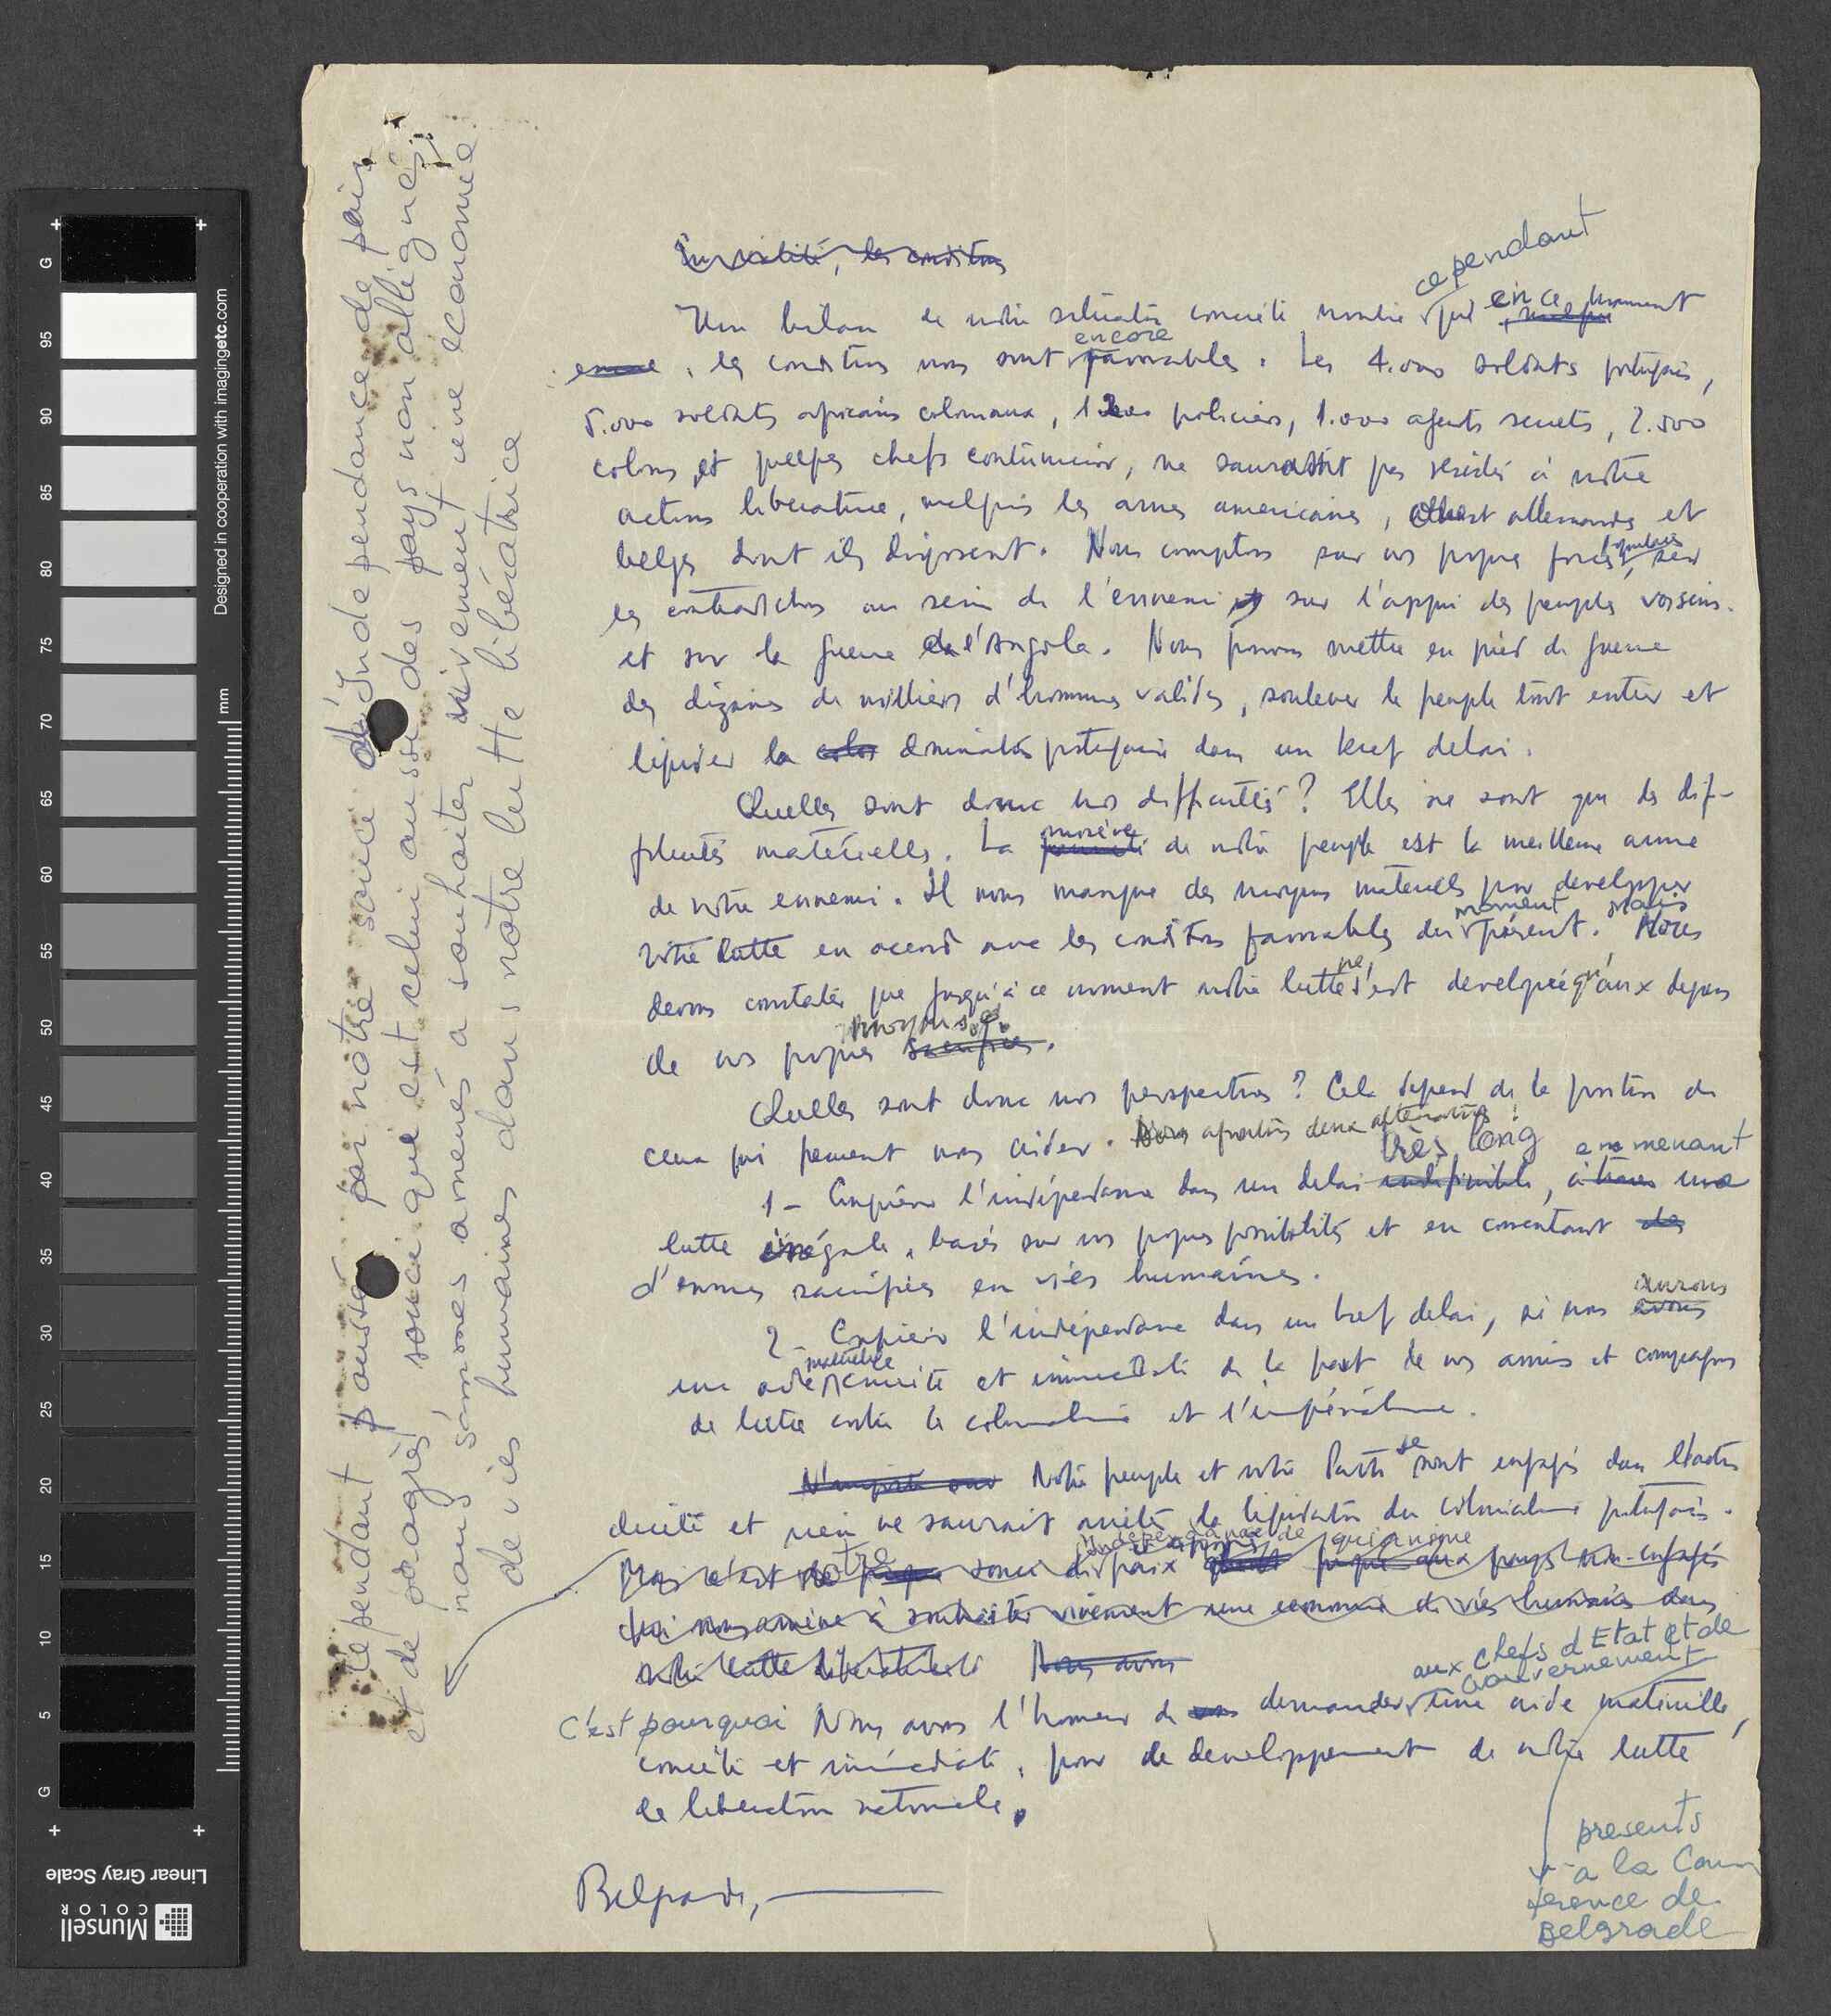 cependant
Un bilan de notre situation concrète montre que en ce moment
encore
, les conditions nous sont favorables. Les 4.000 soldats portugais,
5.000 soldats africains coloniaux, policiers, 1.000 agents secrets, 2.500
colons et quelques chefs coutumiers, ne sauraient pas résister à notre
action libératrice, malgré les armes americaines, ouest allemandes et
belges dont ils disposent. Nous comptons sur nos propres forces, sur
les contradictions au sein de l'ennemi sur l'appui des peuples voisins
et sur la guerre de l'Angola. Nous pouvons mettre en pied de guerre
des dizaines de milliers d'hommes valides, soulever le peuple tout entier et
liquider la domination portugaise dans un bref delai.
Quelles sont donc nos difficultés? Elles ne sont que des dif-
ficultés matérielles. La misère de notre peuple est la meilleure arme
de notre ennemi. Il nous manque des moyens materiels pour developper
moment mais
notre lutte en accord avec les conditions favorables du présent. Nous
ne
devons constater que jusqu'à ce moment notre lutte s'est developée qu'aux depens
moyens
de nos propres sacrifices.
Quelles sont donc nos perspectives? Cela depend de la position de
ceux qui peuvent nous aider. Nous deux alternatives:
très long en menant
1 - Conquérir l'indépendance dans un delai indefinible, à travers une
lutte inégale, basée sur nos propres possibilités et en consentant des
d'enormes sacrifices en vies humaines.
aurons
2 - Conquérir l'indépendance dans un bref delai, si nous avons
matérielle
une aide concrète et immediate de la part de nos amis et compagnons
de lutte contre le colonialisme et l'impérialisme.
N'importe Notre peuple et notre Parti se sont engagés dans l'action
directe et rien ne saurait arrêter la liquidation du colonialisme portugais.
indépendance de qui anime
Mais c'est notre souci de paix pays non-engagés
qui nous amène à souhaiter vivement une economie de vies humaines dans
notre lutte libératrice Nous avons
aux chefs d'Etat et de
Gouvernement
C'est pourquoi Nous avons l'honneur de demander une aide matérielle,
concrète et immédiate, pour de developpement de notre lutte
de liberation nationale.
presents
à la Con
ference de
Belgrade
Belgrade,
Cependant par notre souci d'Independance de paix
et de progrès souci que est celui aussi des pays non allignés,
nous sommes amenés a souhaiter vivement une économie
de vies humaines dans notre lutte libératrice
G
95
90
85
80
75
70
65
60
55
50
45
40
35
30
25
20
15
10
5
G
mm
Designed in cooperation with imagingetc.com
Linear Gray Scale
Munsell
COLOR